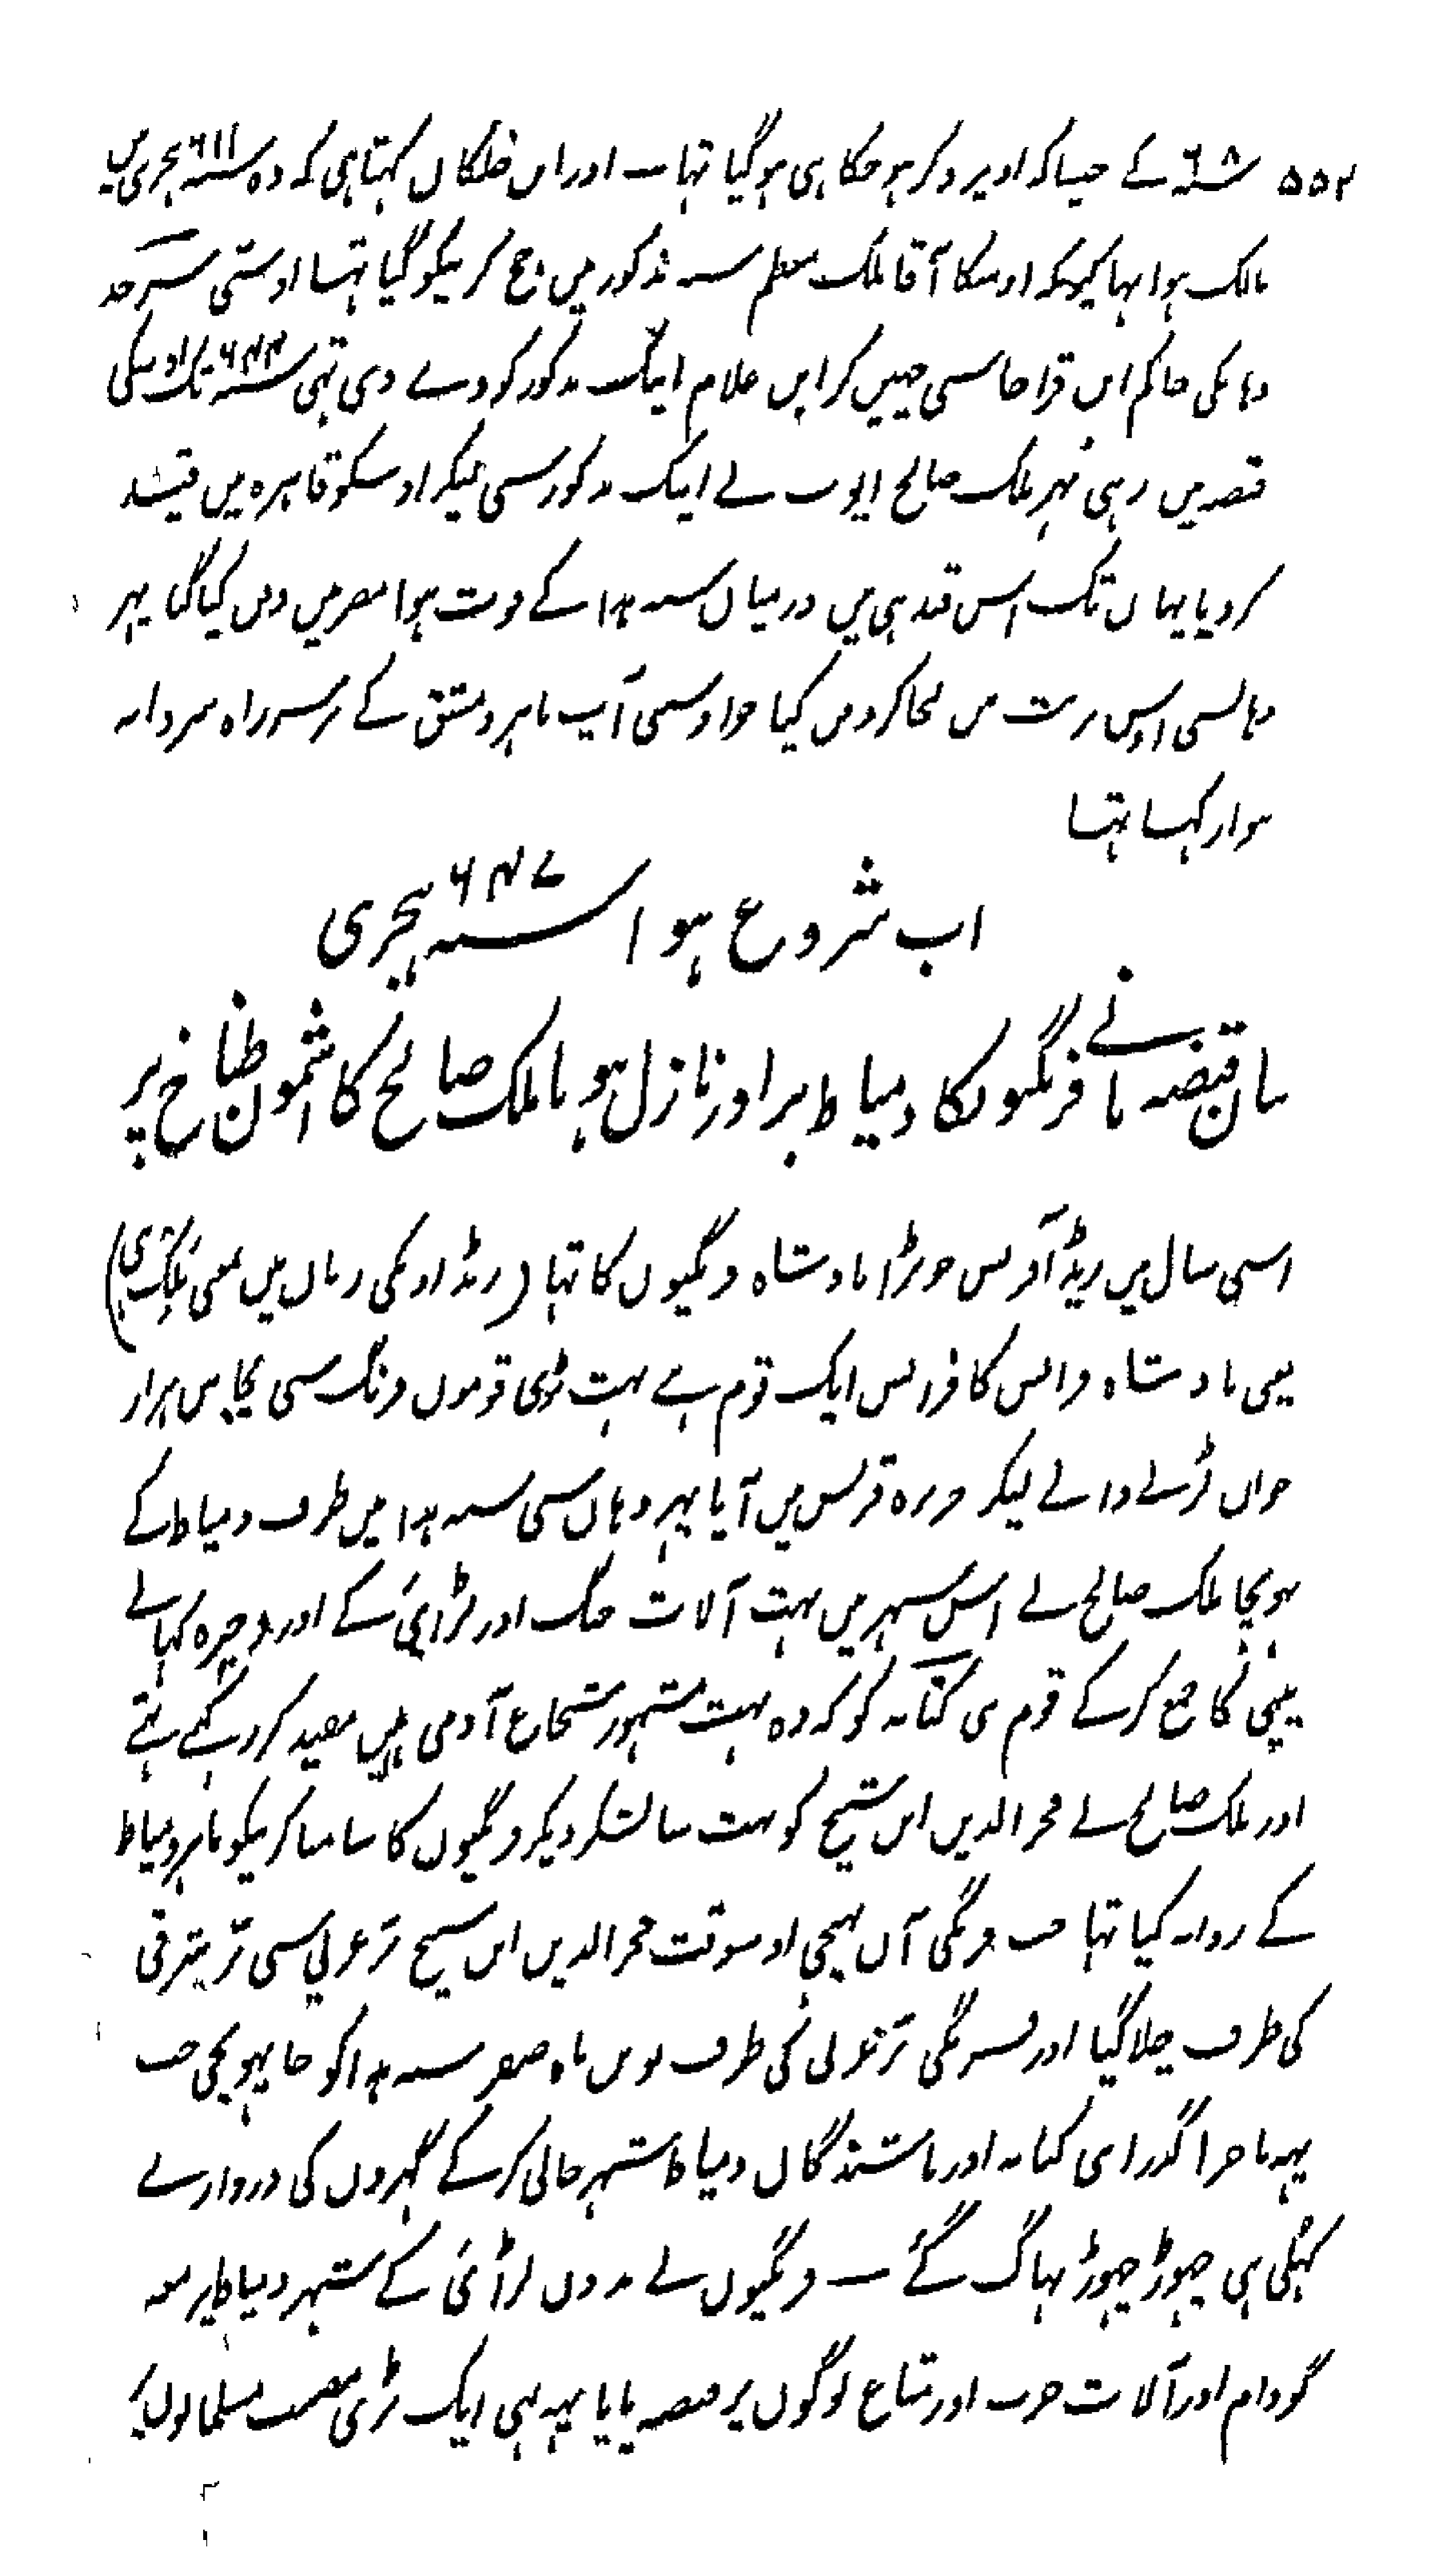 ۵۵۲ سنہ ۶۰۸ کے جیسا کہ اوپر ذکر ہو چکا ہی ہو گیا تہا ۔ اور ابن خلکان کہتا ہی کہ وہ سنہ ۶۱۱ ہجری میں
مالک ہوا تہا کیونکہ اوسکا آقا ملک معظم سنہ مذکور میں حج کرنیکو گیا تہا اوسنی سرخد
وہانکی حاکم ابن قراجا سی چہین کر اپنی غلام ایبک مذکور کو دے دی تہی سنہ ۶۴۴ تک اوسکی
قبضہ میں رہی پہر ملک صالح ایوب نے ایبک مذکور سی لیکر اوسکو قاہرہ میں قید
کر دیا یہاں تک اس قید ہی میں درمیان سنہ ہذا کے فوت ہوا مصر میں دفن کیا گیا پہر
وہانسی اوس تربت میں لیجا کر دفن کیا جو اوسی آپ باہر دمشق کے برسر راہ میدان
سوار کہا تہا
اب شروع ہوا سنہ ۶۴۷ ہجری
بیان قبضہ پانے فرنگیوں کا دمیاط پر اور نازل ہونا ملک صالح کا اشمون طناخ پر
اسی سال میں ریڈ آفرنس جو بڑا بادشاہ فرنگیوں کا تہا (ریڈ اونکی زبان میں بمعنی ملک ہی)
یعنی بادشاہ فرانس کا فرانس ایک قوم ہے بہت بڑی قوموں فرنگ سی پچاس ہزار
جوان لڑنے والے لیکر جزیرہ قبرس میں آیا پہر وہاں سی سنہ ہذا میں طرف دمیاط کے
پہونچا ملک صالح نے اس شہر میں بہت آلات جنگ اور لڑائی کے اور ذخیرہ کہانے
پینی کا جمع کرکے قوم بنی کنانہ کو کہ وہ بہت مشہور شجاع آدمی ہیں مقید کر رکہے تہے
اور ملک صالح نے فخر الدین ابن شیخ کو بہت سا لشکر دیکر فرنگیوں کا سامنا کرنیکو باہر دمیاط
کے روانہ کیا تہا جب فرنگی آن پہنچی اوسوقت فخر الدین ابن شیخ بر غربی سی بر شرقی
کی طرف چلا گیا اور فرنگی بر غربی کی طرف نویں ماہ صفر سنہ ہذا کو جا پہونچی جب
یہہ ماجرا گذرا بنی کنانہ اور باشندگان دمیاط شہر خالی کرکے گہروں کی دروازے
کہلی ہی چہوڑ چہوڑ بہاگ گئے ۔ فرنگیوں نے بدون لڑائی کے شہر دمیاط پر معہ
گودام اور آلات حرب اور متاع لوگوں پر قبضہ پایا یہہ بہی ایک بڑی مصیبت مسلمانوں پر